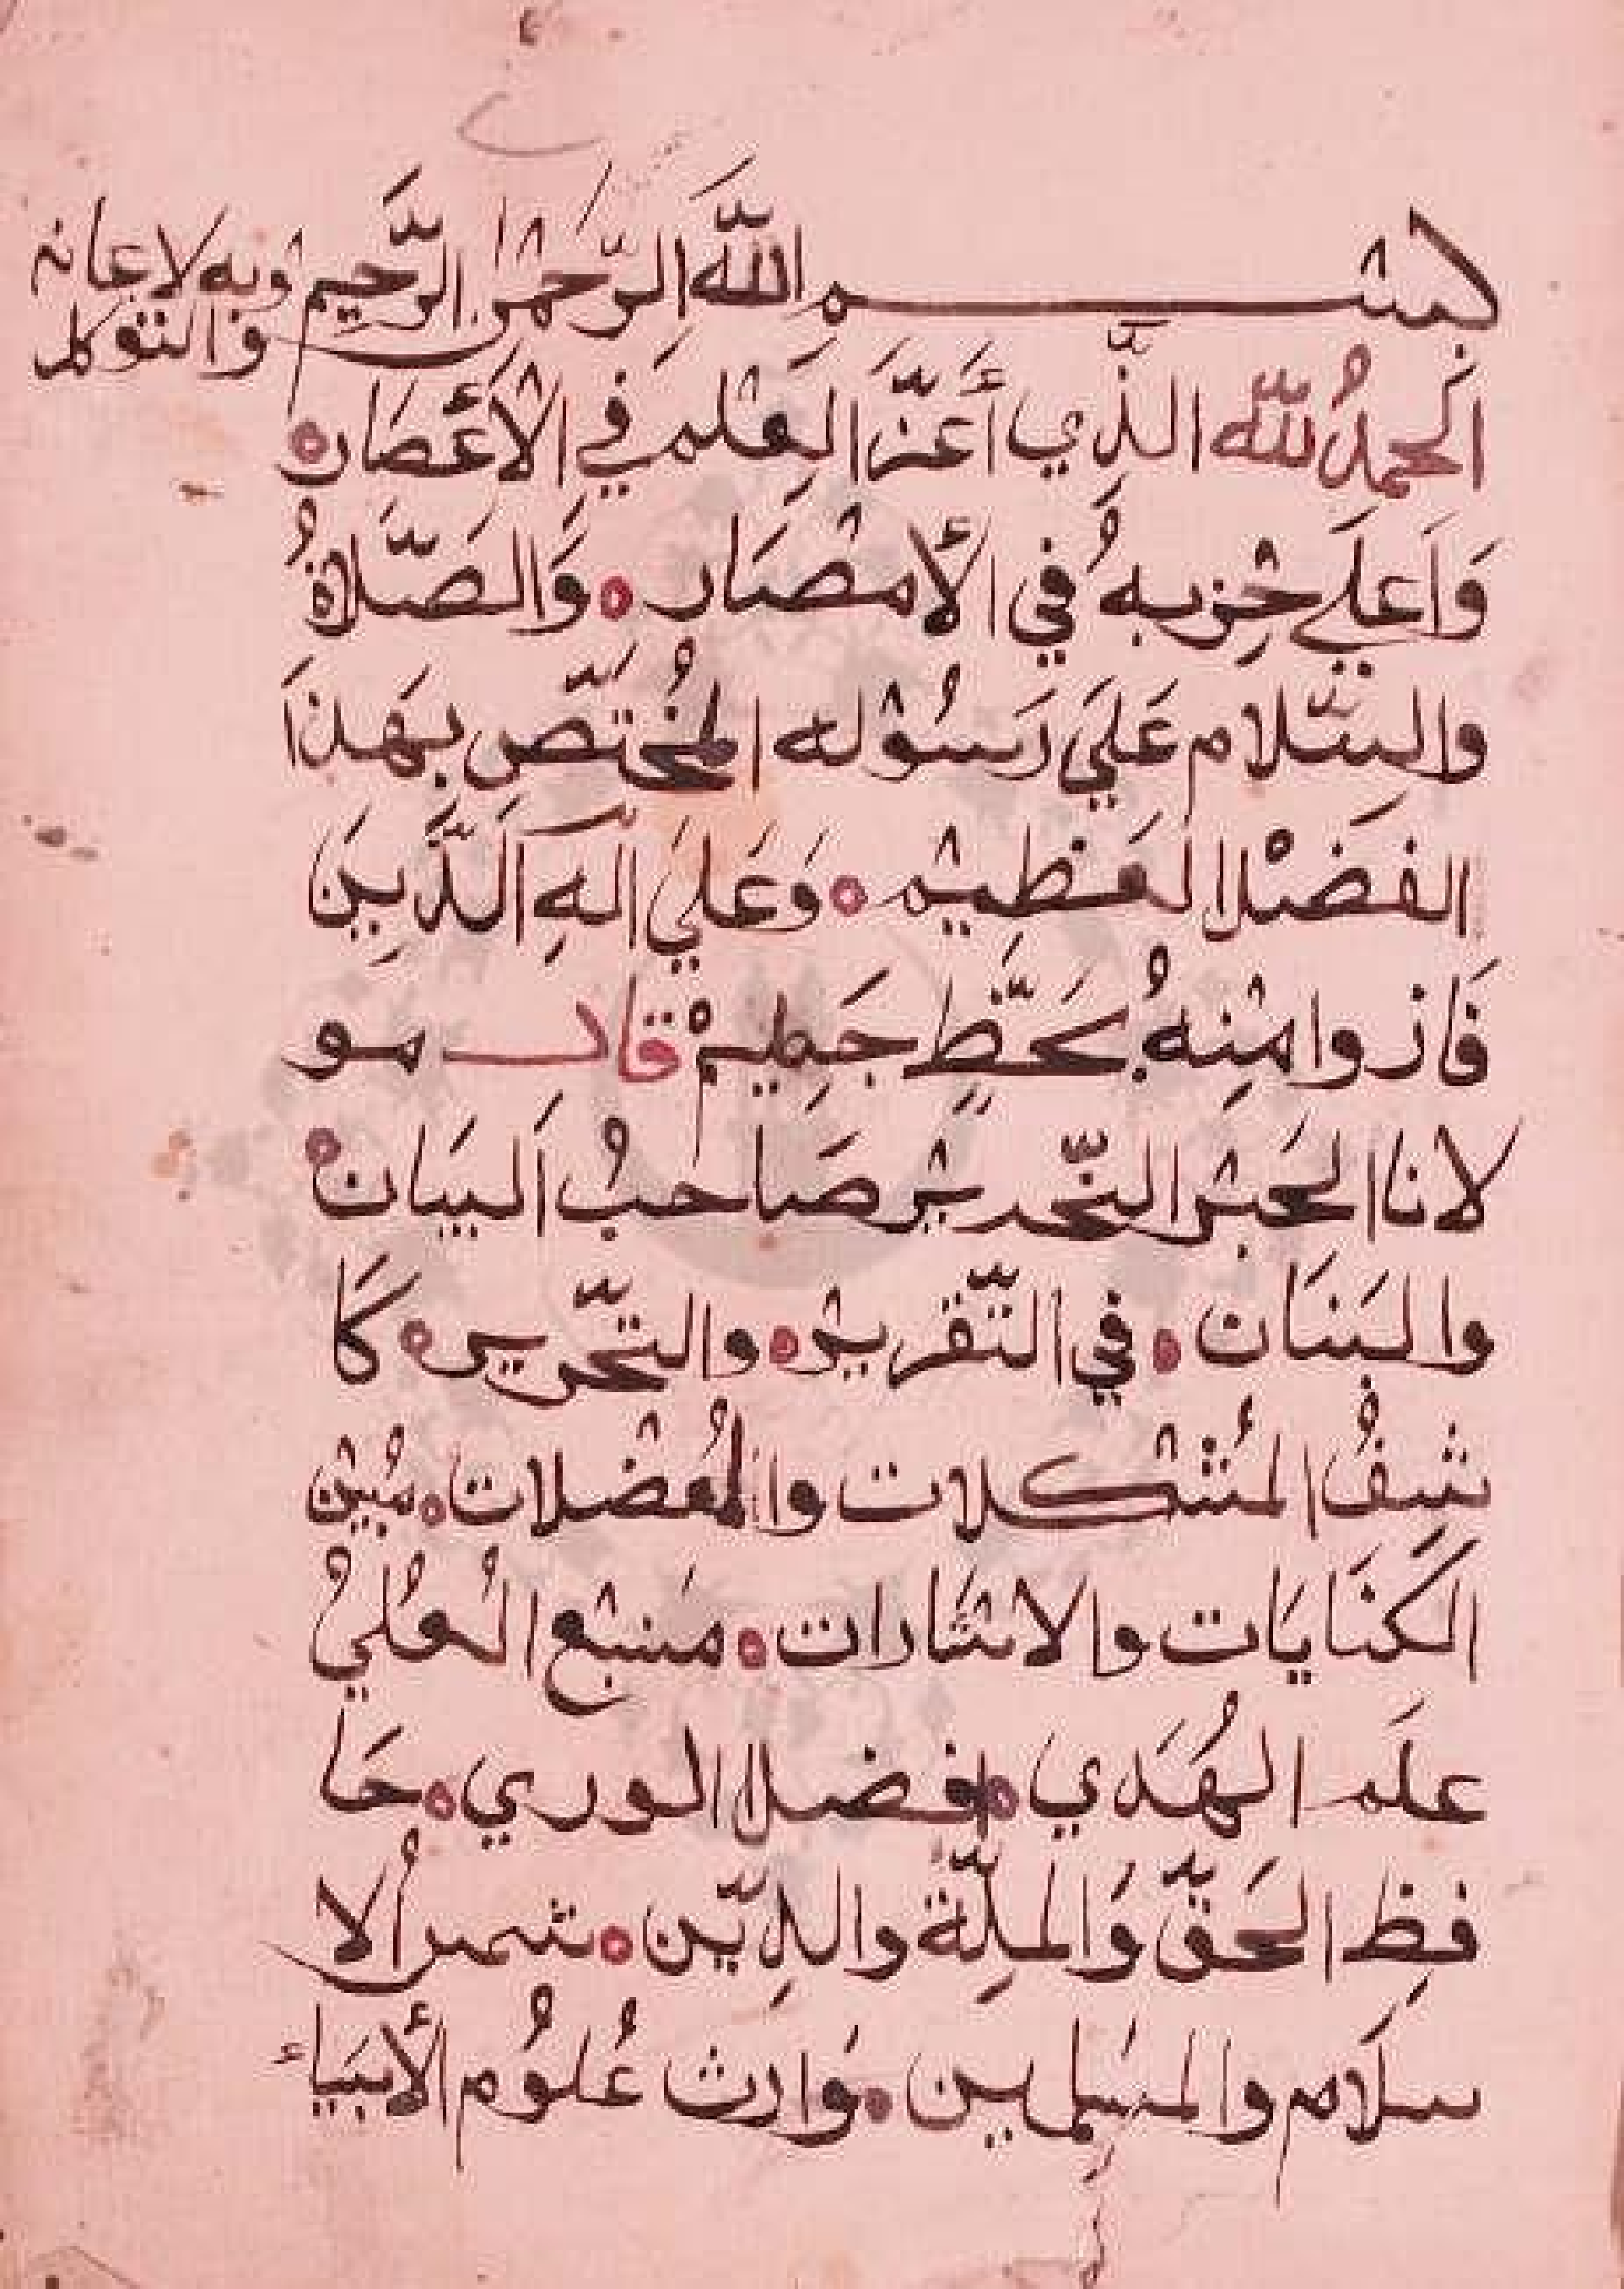 بسم الله الرحمن الرحيم وبه لاعانه
والتوكل
الحمدُ لله الذي أَعَزَّ العِلمَ في الأَعْصَار
وَاَعلَي حِزبهُ في الأمصَار وَالصَّلاةُ
والسّلام عَلَي رَسُوله المُختَصِّ بهَذَا
الفَضْل العَظِيم وَعَلَي الهِ الَّذِينَ
فَازوا مِنهُ بحَظٍّ جَسِيمْ قال مو
لانا الحَبر النّحرير صَاحبُ البَيَان
والبَنَان في التّقرير والتّحرير كَا
شِفُ المُشكلات والمُعضلات مُبين
الكنَايَات والاشَارات مَنبع العُلي
علَم الهُدَي افضل الوري حَا
فِظ الحَقّ وَالملِّة والدِّين شمس ألا
سلَام والمسَلمين وَارث عُلوُم الأنبيَاء